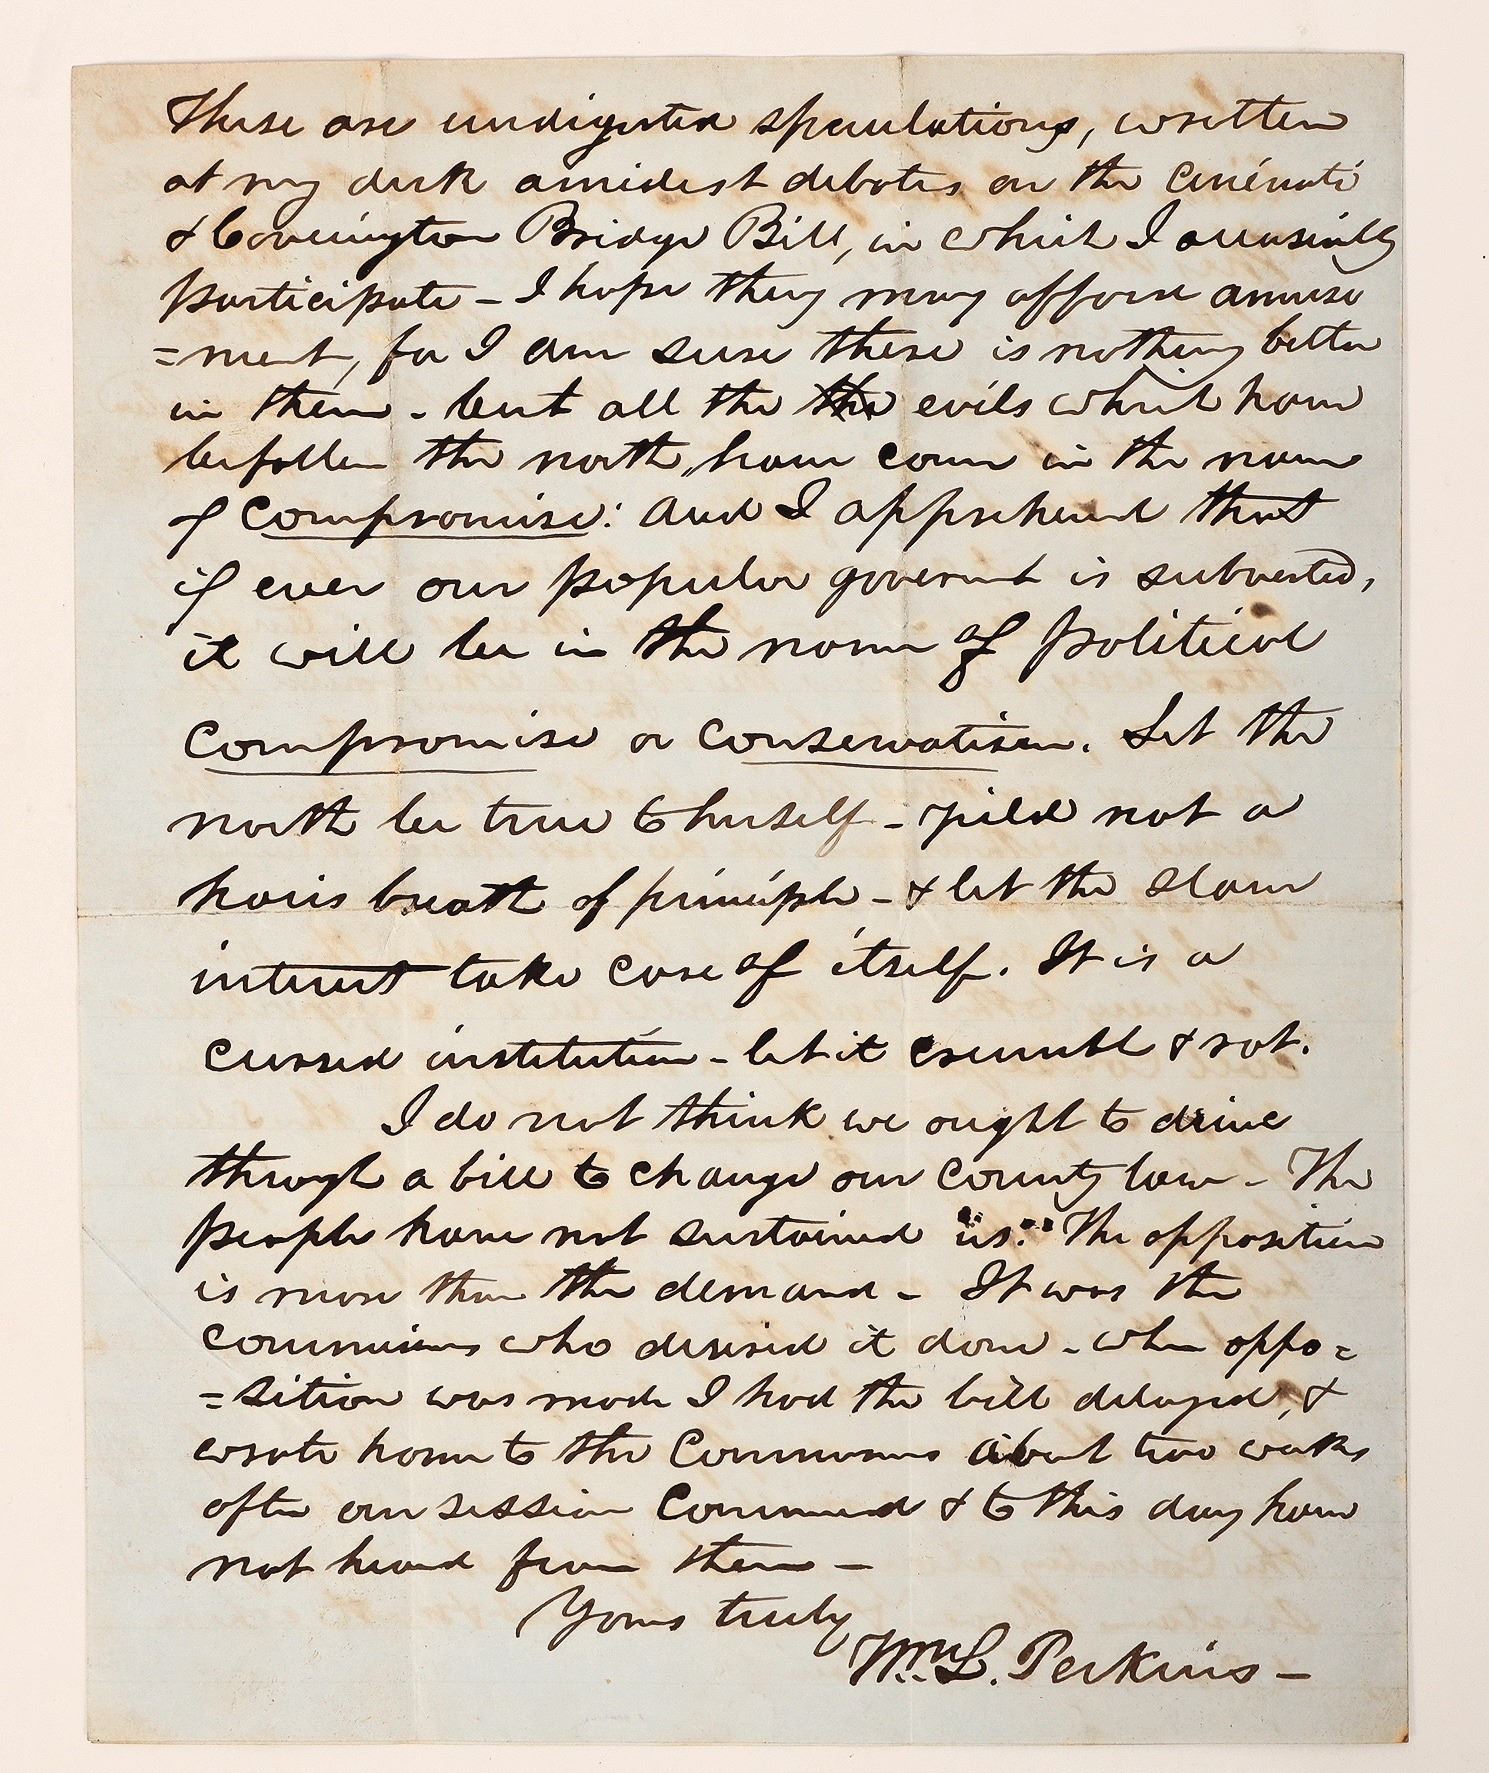 These are undigested speculations, written
at my desk amidst debates on the Cincinati
& Covington Bridge Bill, in which I occasionally
participate – I hope they may afford amuse
=ment, for I am sure there is nothing better
in them – but all the the evils which have
befallen the north, have come in the name
of Compromise: And I apprehend that
if ever our popular government is subverted,
it will be in the name of political
Compromise or Conservatism. Let the
north be true to herself – yield not a
hairs breath of principle – & let the slave
interest take care of itself. It is a
cursed institution – let it crumble & rot.
I do not think we ought to drive
through a bill to change our County law – The
people have not sustained us. The opposition
is more than the demand – It was the
who desired it done – when oppo=
=sition was made I had the bill delayed, &
wrote home to the about two weeks
after our session commenced & to this day have
not heard from them –
Yours truly
Wm. L. Perkins –